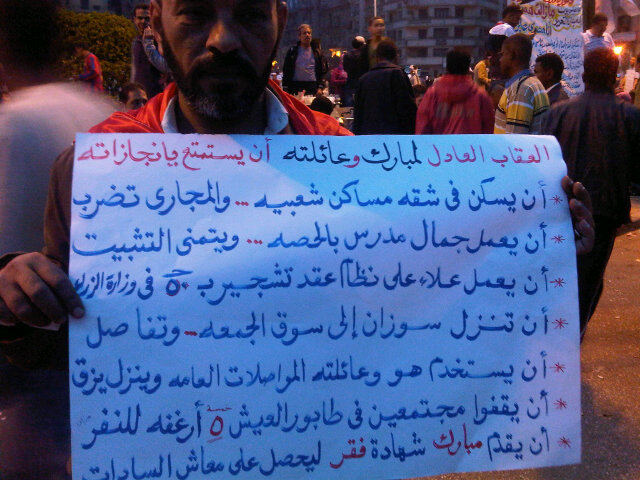 العقاب العادل لمبارك وعائلته أن يستمتع بإنجازاته
* أن يسكن فى شقه مساكن شعبيه ... والمجارى تضرب
* أن يعمل جمال مدرس بالحصه ... ويتمنى التثبيت
* أن يعمل علاء على نظام عقد تشجير بـ ٥٠ جـ فى وزارة الزراعه
* أن تنزل سوزان إلى سوق الجمعه ... وتفاصل
* أن يستخدم هو وعائلته المواصلات العامه وينزل يزق
* أن يقفوا مجتمعين فى طابور العيش ٥ خمسة أرغفه للنفر
* أن يقدم مبارك شهادة فقر ليحصل على معاش السادات